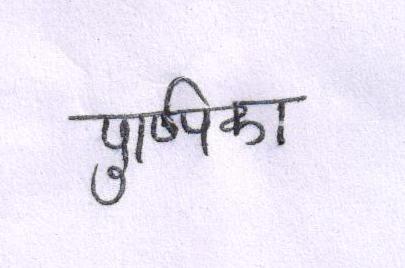 पुष्पिका